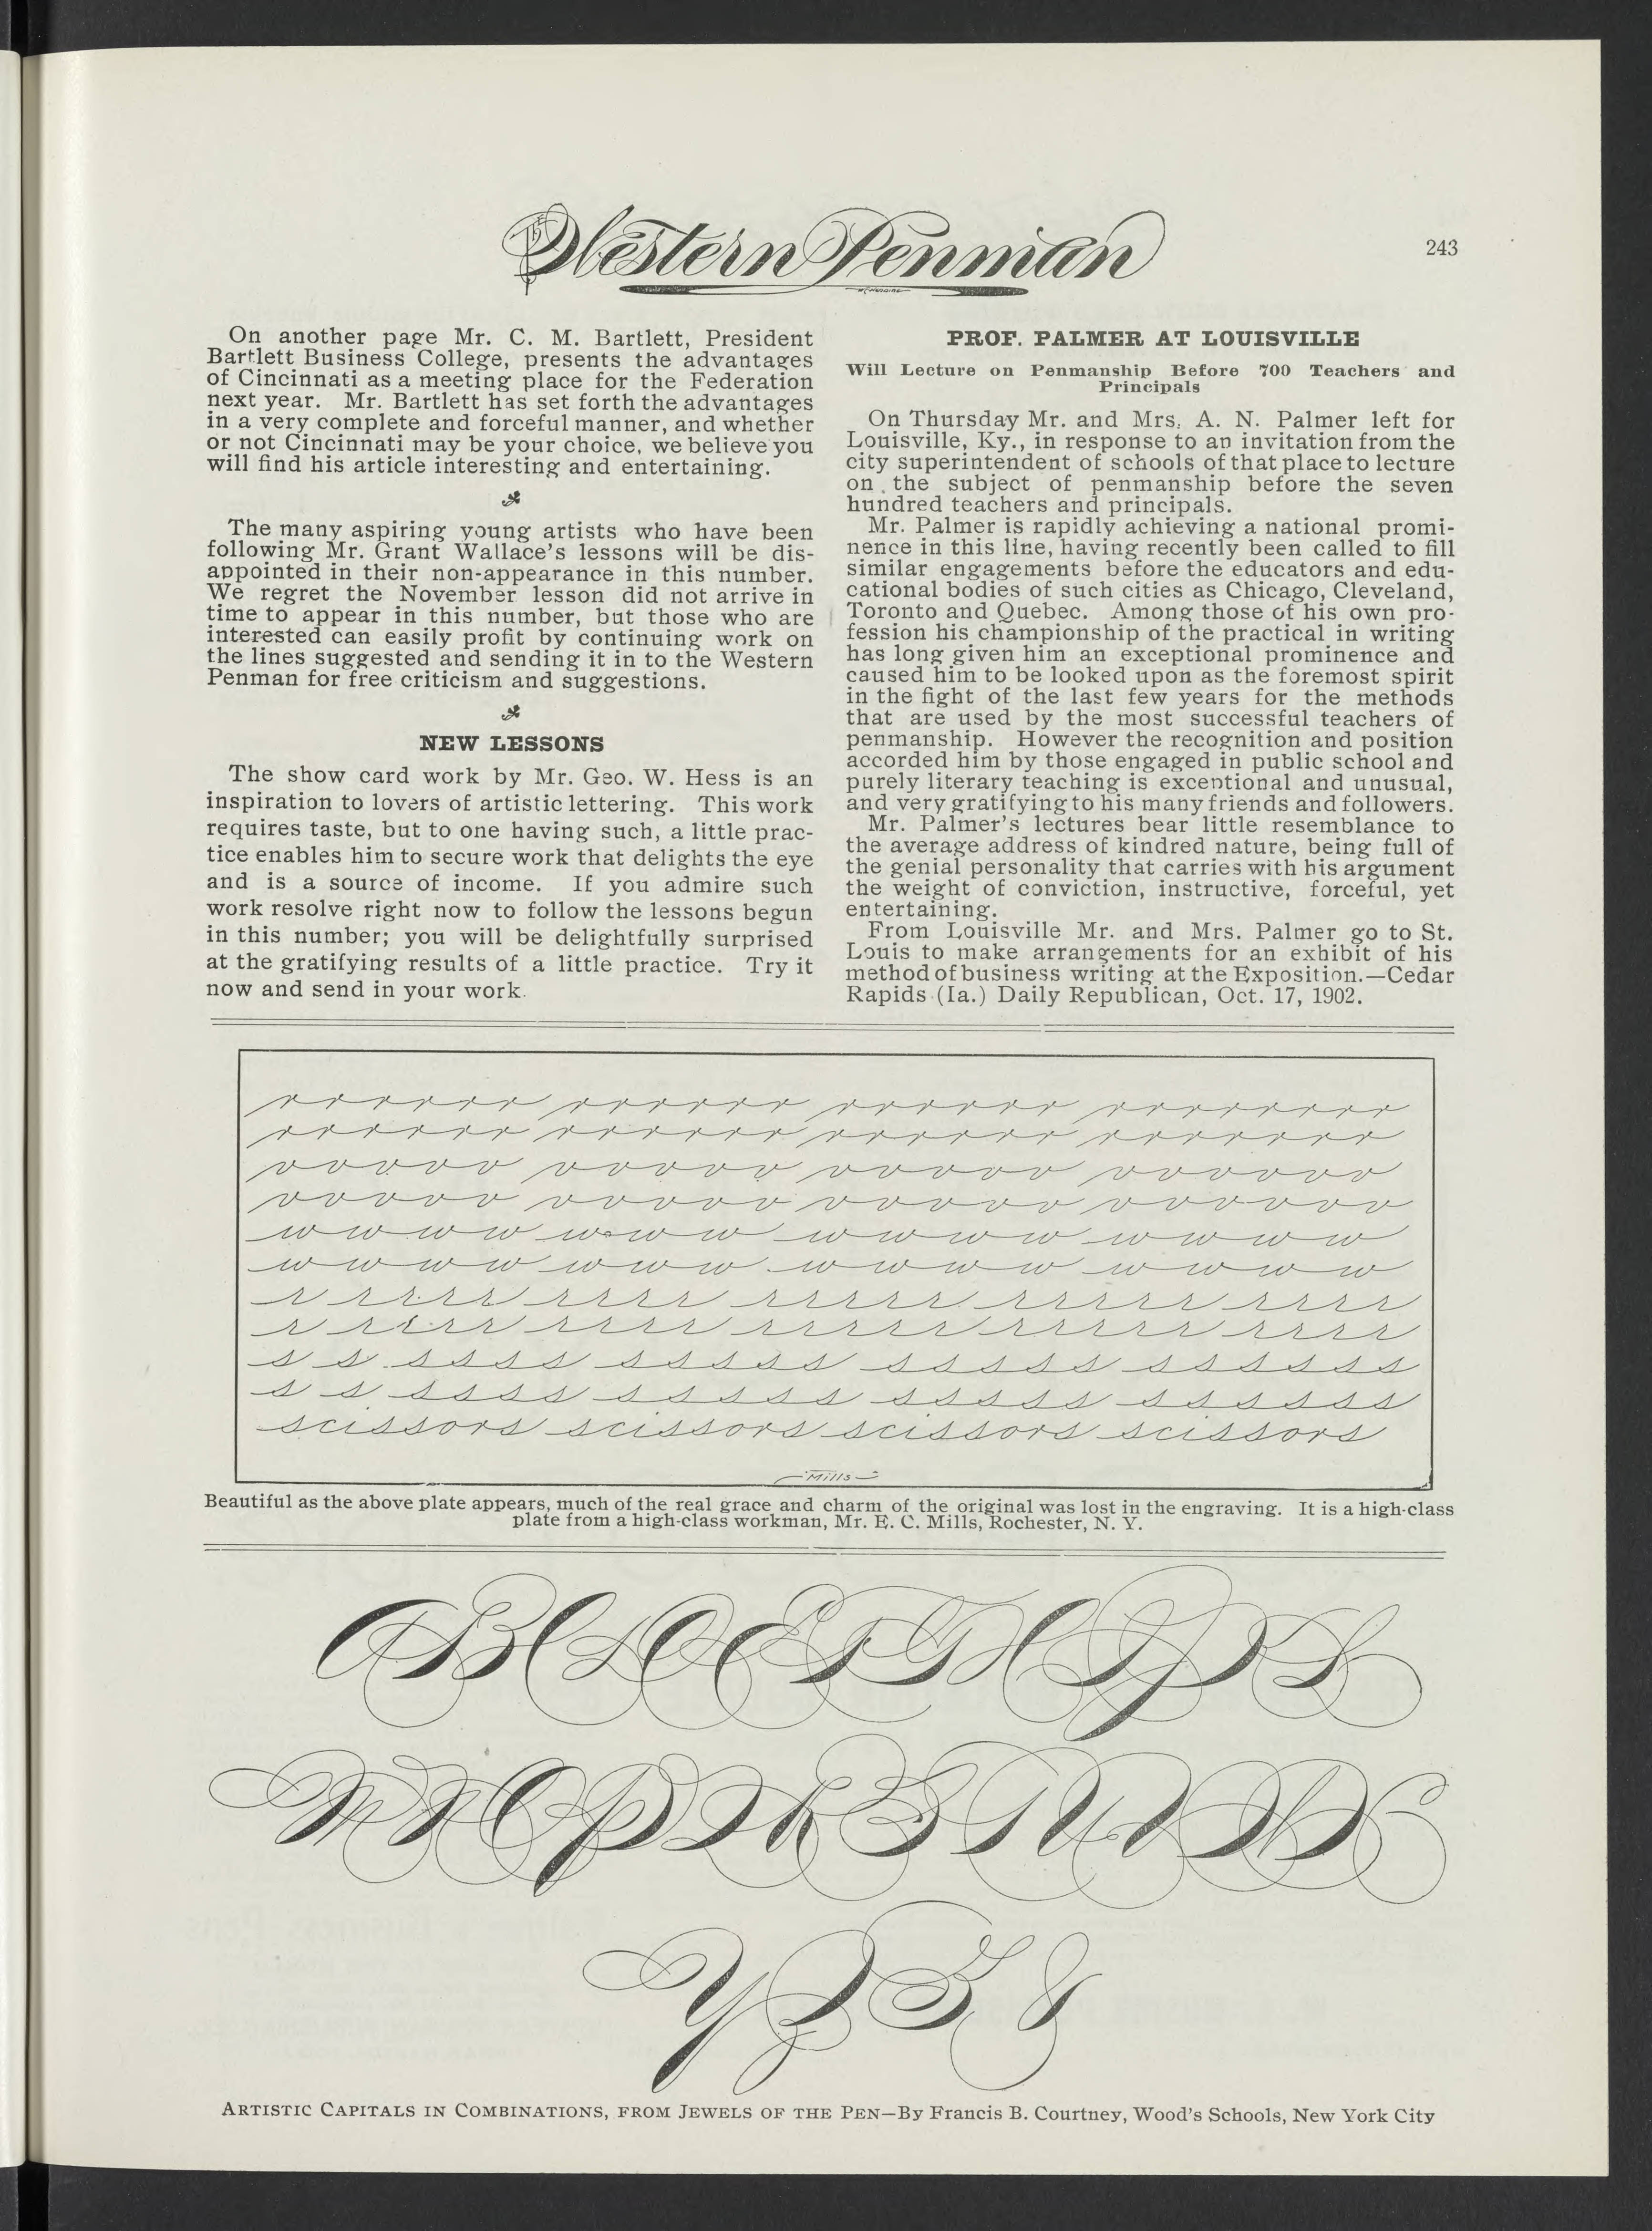 The Western Penman
243
On another page Mr. C. M. Bartlett, President
Bartlett Business College, presents the advantages
of Cincinnati as a meeting place for the Federation
next year. Mr. Bartlett has set forth the advantages
in a very complete and forceful manner, and whether
or not Cincinnati may be your choice, we believe you
will find his article interesting and entertaining.
The many aspiring young artists who have been
following Mr. Grant Wallace's lessons will be dis-
appointed in their non-appearance in this number.
We regret the November lesson did not arrive in
time to appear in this number, but those who are
interested can easily profit by continuing work on
the lines suggested and sending it in to the Western
Penman for free criticism and suggestions.
NEW LESSONS
The show card work by Mr. Geo. W. Hess is an
inspiration to lovers of artistic lettering. This work
requires taste, but to one having such, a little prac-
tice enables him to secure work that delights the eye
and is a source of income. If you admire such
work resolve right now to follow the lessons begun
in this number; you will be delightfully surprised
at the gratifying results of a little practice. Try it
now and send in your work.
PROF. PALMER AT LOUISVILLE
Will Lecture on Penmanship Before 700 Teachers and
Principals
On Thursday Mr. and Mrs. A. N. Palmer left for
Louisville, Ky., in response to an invitation from the
city superintendent of schools of that place to lecture
on the subject of penmanship before the seven
hundred teachers and principals.
Mr. Palmer is rapidly achieving a national promi-
nence in this line, having recently been called to fill
similar engagements before the educators and edu-
cational bodies of such cities as Chicago, Cleveland,
Toronto and Quebec. Among those of his own pro-
fession his championship of the practical in writing
has long given him an exceptional prominence and
caused him to be looked upon as the foremost spirit
in the fight of the last few years for the methods
that are used by the most successful teachers of
penmanship. However the recognition and position
accorded him by those engaged in public school and
purely literary teaching is exceptional and unusual,
and very gratifying to his many friends and followers.
Mr. Palmer's lectures bear little resemblance to
the average address of kindred nature, being full of
the genial personality that carries with his argument
the weight of conviction, instructive, forceful, yet
entertaining.
From Louisville Mr. and Mrs. Palmer go to St.
Louis to make arrangements for an exhibit of his
method of business writing at the Exposition.—Cedar
Rapids (Ia.) Daily Republican, Oct. 17, 1902.
r r r r r r r r r r r r r r r r r r r r r r r r r r
r r r r r r r r r r r r r r r r r r r r r r r r r
v v v v v v v v v v v v v v v v v v v v v
v v v v v v v v v v v v v v v v v v v v v
w w w w w w w w w w w w w w w
w w w w w w w w w w w w w w w
r r r r r r r r r r r r r r r r r r r r r r r
r r r r r r r r r r r r r r r r r r r r r r r
s s s s s s s s s s s s s s s s s s s s s s
s s s s s s s s s s s s s s s s s s s s s s
scissors scissors scissors scissors
Mills
Beautiful as the above plate appears, much of the real grace and charm of the original was lost in the engraving. It is a high-class
plate from a high-class workman, Mr. E. C. Mills, Rochester, N. Y.
A B C D E F G H I J K L
M N O P Q R S T U V W X
Y Z &
ARTISTIC CAPITALS IN COMBINATIONS, FROM JEWELS OF THE PEN—By Francis B. Courtney, Wood's Schools, New York City